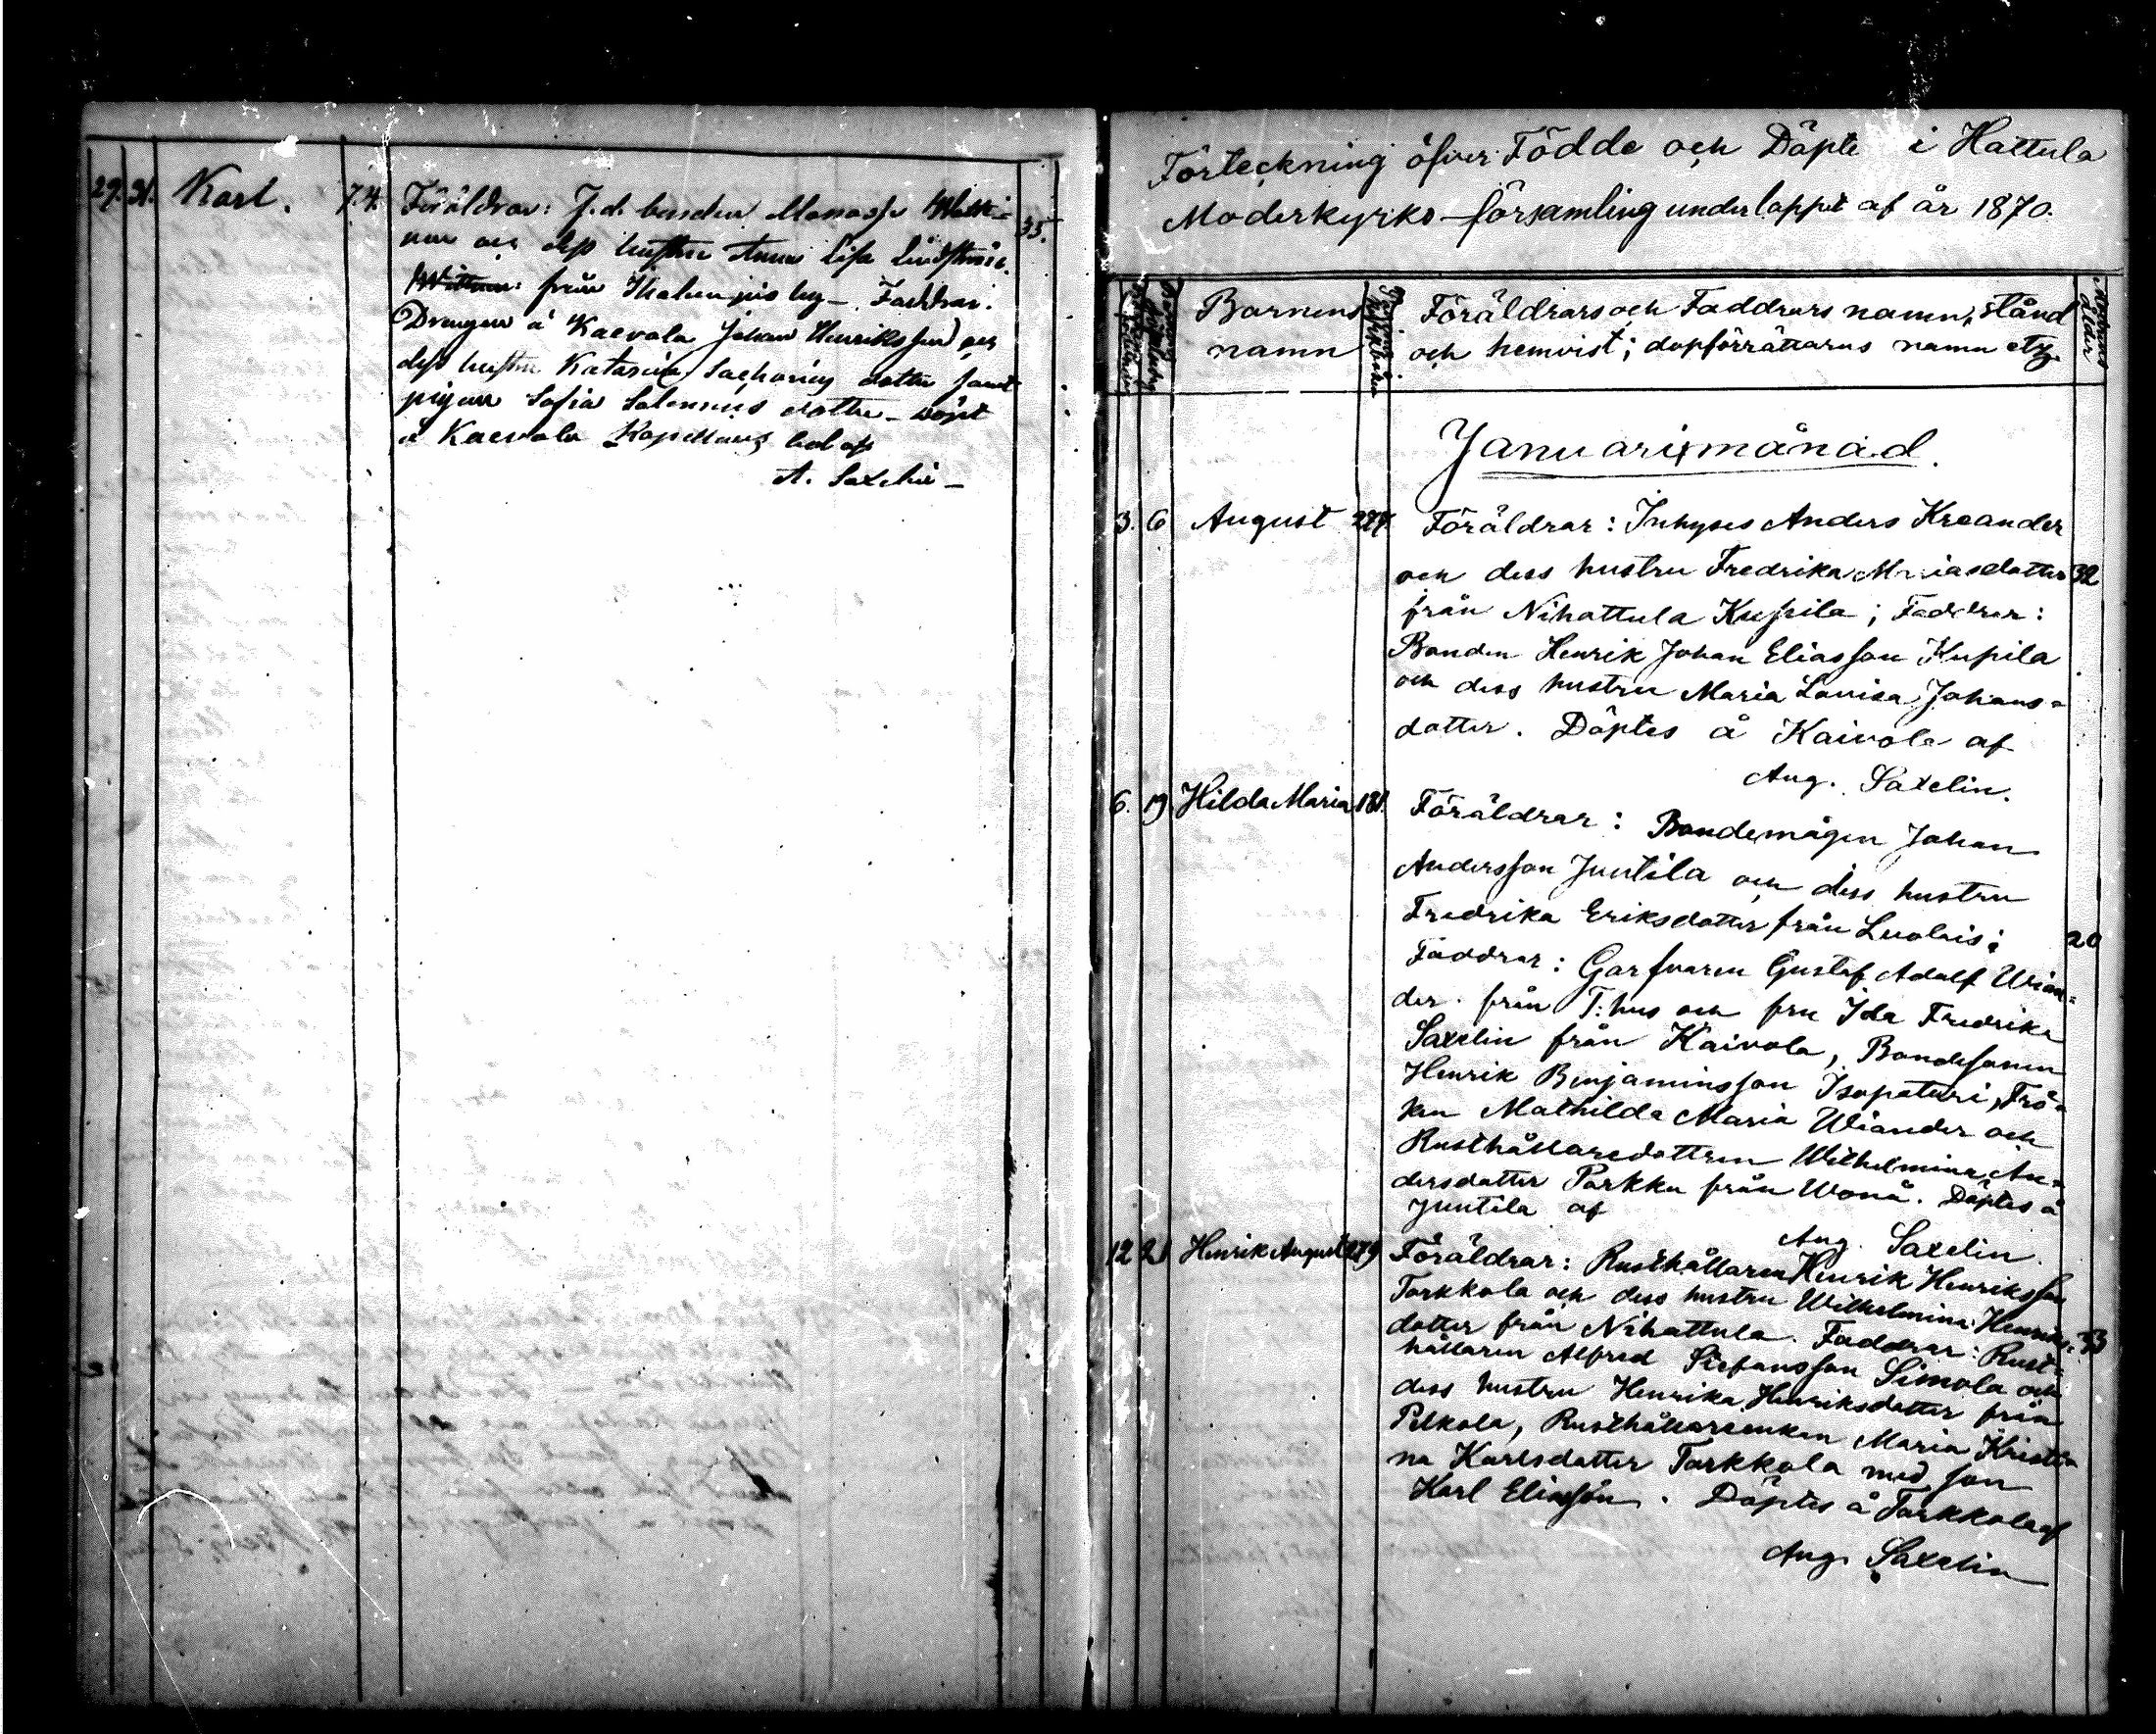 29. 31. Karl. 74. Föräldrar: J. d. bonden Manasse
nen och dess hustru Anna Lisa 35.
från by - Faddrar:
Drengen å Kaevola Johan Henriksson och
dess hustru Katarina dotter samt
pigan Sofia dotter - döpt
å Kaevola Kapellans bol af
A. Saxelin -
Förteckning öfver Födde och Döpte i Hattula
Moderkyrko-församling under loppet af år 1870.
Barnens namn
Föräldrars och Faddrars namn, stånd
och hemvist; dopförrättarens namn etc.
Moderns ålder
Januari månad.
3. 6 August 227. Föräldrar: Inhyses Anders Kreander
och dess hustru Fredrika Mariasdotter 32
från Nihattula Kupila; Faddrar:
Bonden Henrik Johan Eliasson Kupila
och dess hustru Maria Lovisa Johans=
dotter. Döptes å Kaivola af
Aug. Saxelin.
6. 19 Hilda Maria 181. Föräldrar: Bondemågen Johan
Andersson Juutila och dess hustru
Fredrika Eriksdotter från Luolais; 20
Faddrar: Garfvaren Gustaf Adolf Wian=
der från T:hus och fru Ida Fredrika
Saxelin från Kaivola, Bondesonen
Henrik Benjaminsson Isopoturi, Frö=
ken Mathilda Maria Wiander och
Rusthållaredottren Wilhelmina An=
dersdotter Parkku från Wonå. Döptes å
Juutila af
Aug. Saxelin.
12 21 Henrik August 279 Föräldrar: Rusthållaren Henrik Henriksson
Torkkola och dess hustru Wilhelmina Henriks=
dotter från Nihattula. Faddrar: Rust= 33
hållaren Alfred Stefansson Simola och
dess hustru Henrika Henriksdotter från
Pelkola, Rusthållareenkan Maria Kristi=
na Karlsdotter Torkkola med son
Karl Eliasson. Döptes å Torkkola af
Aug. Saxelin